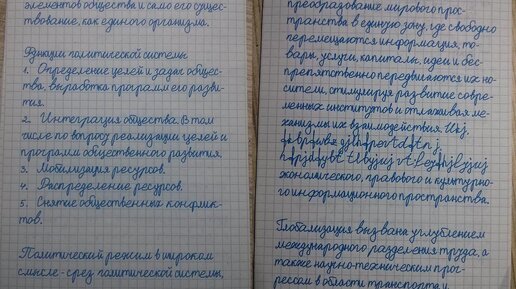 элементов общества и само его сущес-
ствование, как единого организма.
Функции политической системы
1. Определение целей и задач общес-
тва, выработка программ его разви-
тия.
2. Интеграция общества. В том
числе по вопросу реализации целей и
программ общественного развития.
3. Мобилизация ресурсов.
4. Распределение ресурсов.
5. Снятие общественных конфлик-
тов.
Политический режим в широком
смысле - срез политической системы,
преобразование мирового прос-
транства в единую зону, где свободно
перемещаются информация, то-
вары, услуги, капиталы, идеи и бес-
препятственно передвигаются их но-
сители, стимулируя развитие совре-
менных институтов и отлаживая ме-
ханизмы их взаимодействия.
экономического, правового и культурно-
го информационного пространства.
Глобализация вызвана углублением
международного разделения труда, а
также научно-техническим прог-
рессом в области транспорта и